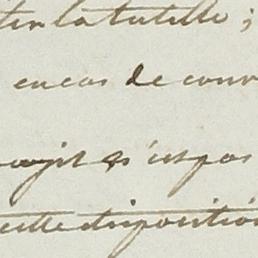 la tutelle ;
en cas de conv
n'est pas
cette disposition